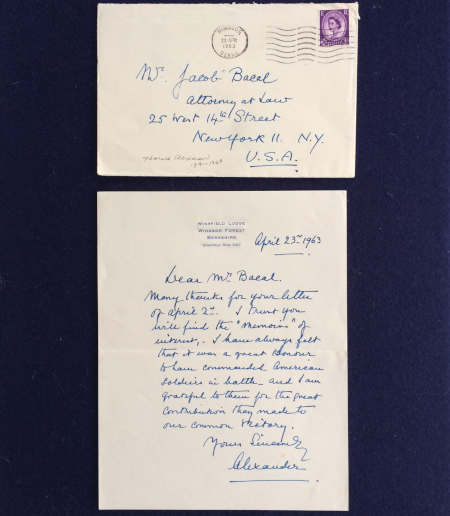 WINDSOR
1963
BERKS
Mr. Jacob Bacal
Attorney at Law
25 West 14th Street
New York 11. N.Y.
U.S.A.
WINKFIELD LODGE
WINDSOR FOREST
BERKSHIRE.
April 23rd 1963
Dear Mr. Bacal.
Many thanks for your letter
of April 2d. I trust you
will find the "Memoirs" of
interest. I have always felt
that it was a great honour
to have commanded American
soldiers in battle - and I am
grateful to them for the great
contribution they made to
our common Victory.
Yours Sincerely
Alexander